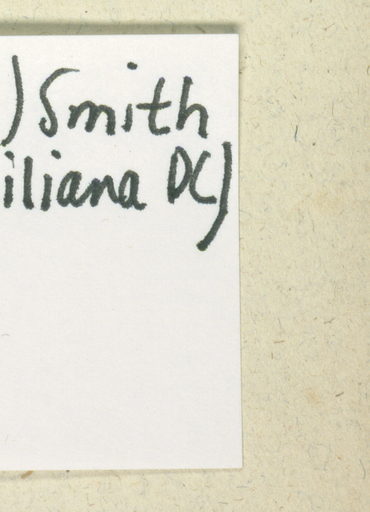 ) Smith
iliana DC)